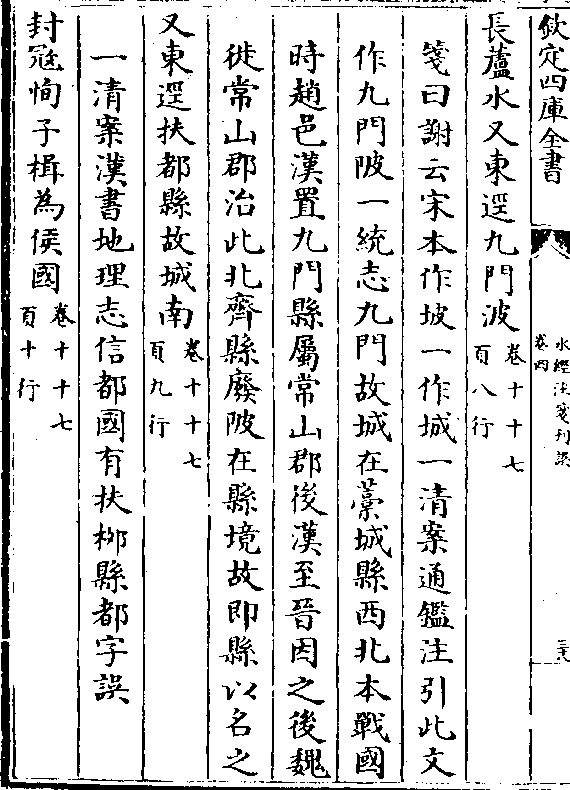 欽定四庫全書
水經注箋刊誤
卷四
長蘆水又東逕九門波卷十十七頁八行
箋曰謝云宋本作坡一作城一清案通鑑注引此文
作九門陂一統志九門故城在藁城縣西北本戰國
時趙邑漢置九門縣屬常山郡後漢至晉因之後魏
徙常山郡治此北齊縣廢陂在縣境故即縣以名之
又東逕扶都縣故城南卷十十七頁九行
一清案漢書地理志信都國有扶桺縣都字誤
封冦恂子楫為侯國卷十十七頁十行